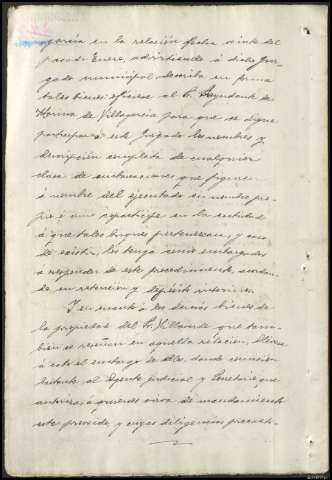 garcía en la relación fecha veinte del
pasado Enero, advirtiendo á dicho Juz-
gado municipal describa en forma
tales bienes: ofíciese al Sr. Ayudante de
Marina de Villagarcía para que se digne
participar á este Juzgado los nombres y
descripción completa de cualquier
clase de embarcaciones que figuren
á nombre del ejecutado en nombre pro-
pio ó como copartícipe en la entidad
á que tales buques pertenezcan, y caso
de existir, los tenga como embargados
á responder de este procedimiento,
en retención y depósito interino.
Y en cuanto á los demás bienes de
la propiedad del Sr. Villaverde que tam-
bién se reseñan en aquella relación, llévese
á cabo el embargo de ellos, dando comisión
bastante al Agente judicial y Secretario que
autoriza, á quienes sirva de mandamiento
este proveído, y cuyas diligencias